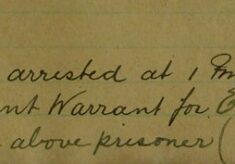 arrested at 1 Pm
nt Warrant for E
above prisoner (